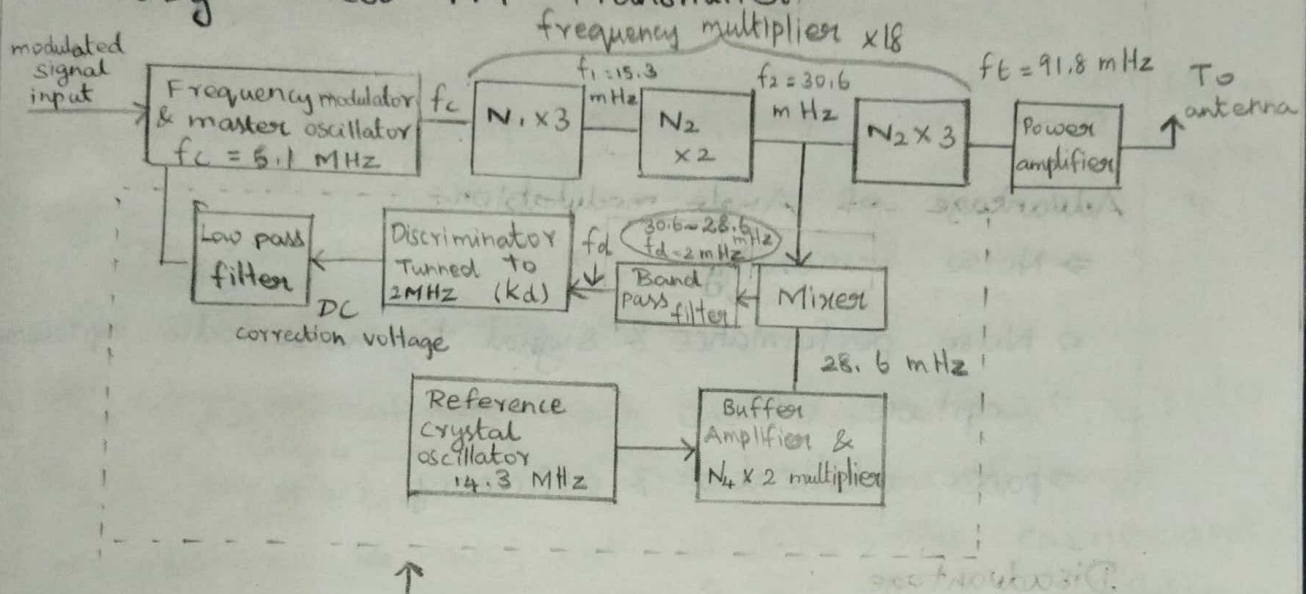 frequency multiplier x18
modulated
signal
input
Frequency modulator
& master oscillator
fc = 5.1 MHz
fc
N₁ x 3
f₁ = 15.3
mHz
N₂
x 2
f₂ = 30.6
mHz
N₂ x 3
ft = 91.8 mHz
Power
amplifier
To
antenna
Low pass
filter
DC
correction voltage
Discriminator
Tunned to
2MHz (Kd)
fd
30.6-28.6
mHz
fd = 2 mHz
Band
pass
filter
Mixer
28.6 mHz
Reference
Crystal
oscillator
14.3 MHz
Buffer
Amplifier &
N₄ x 2 multiplier